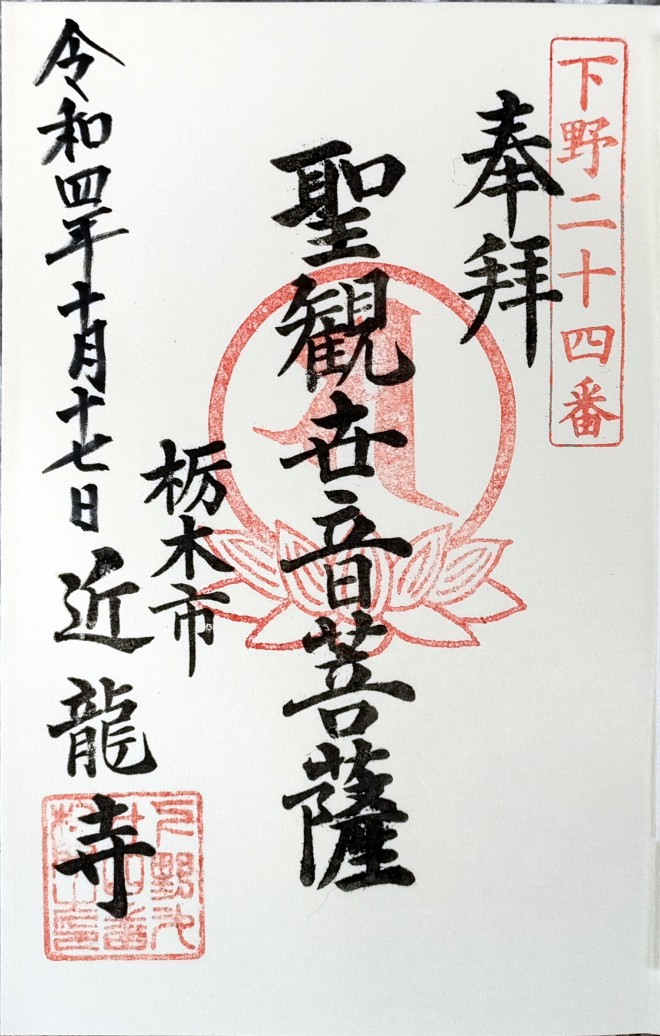 下野二十四番
奉拝
聖観世音菩薩
栃木市
令和四年十月十七日
近龍寺